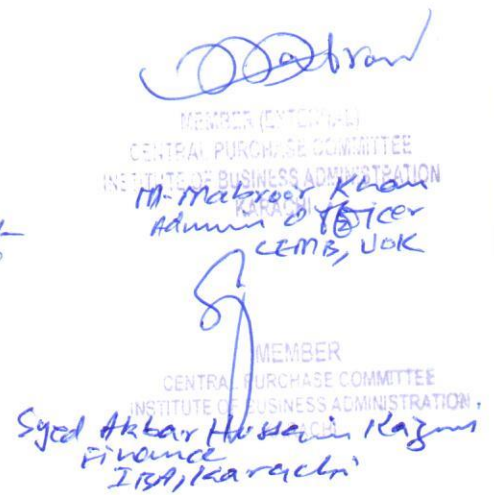 MEMBER (EXTERNAL)
CENTRAL PURCHASE COMMITTEE
INSTITUTE OF BUSINESS ADMINISTRATION
KARACHI
M. Mahroor Khan
Admin Officer
CEMB, UOK
MEMBER
CENTRAL PURCHASE COMMITTEE
INSTITUTE OF BUSINESS ADMINISTRATION
KARACHI
Syed Akbar Hussain Kazmi
Finance
IBA, Karachi